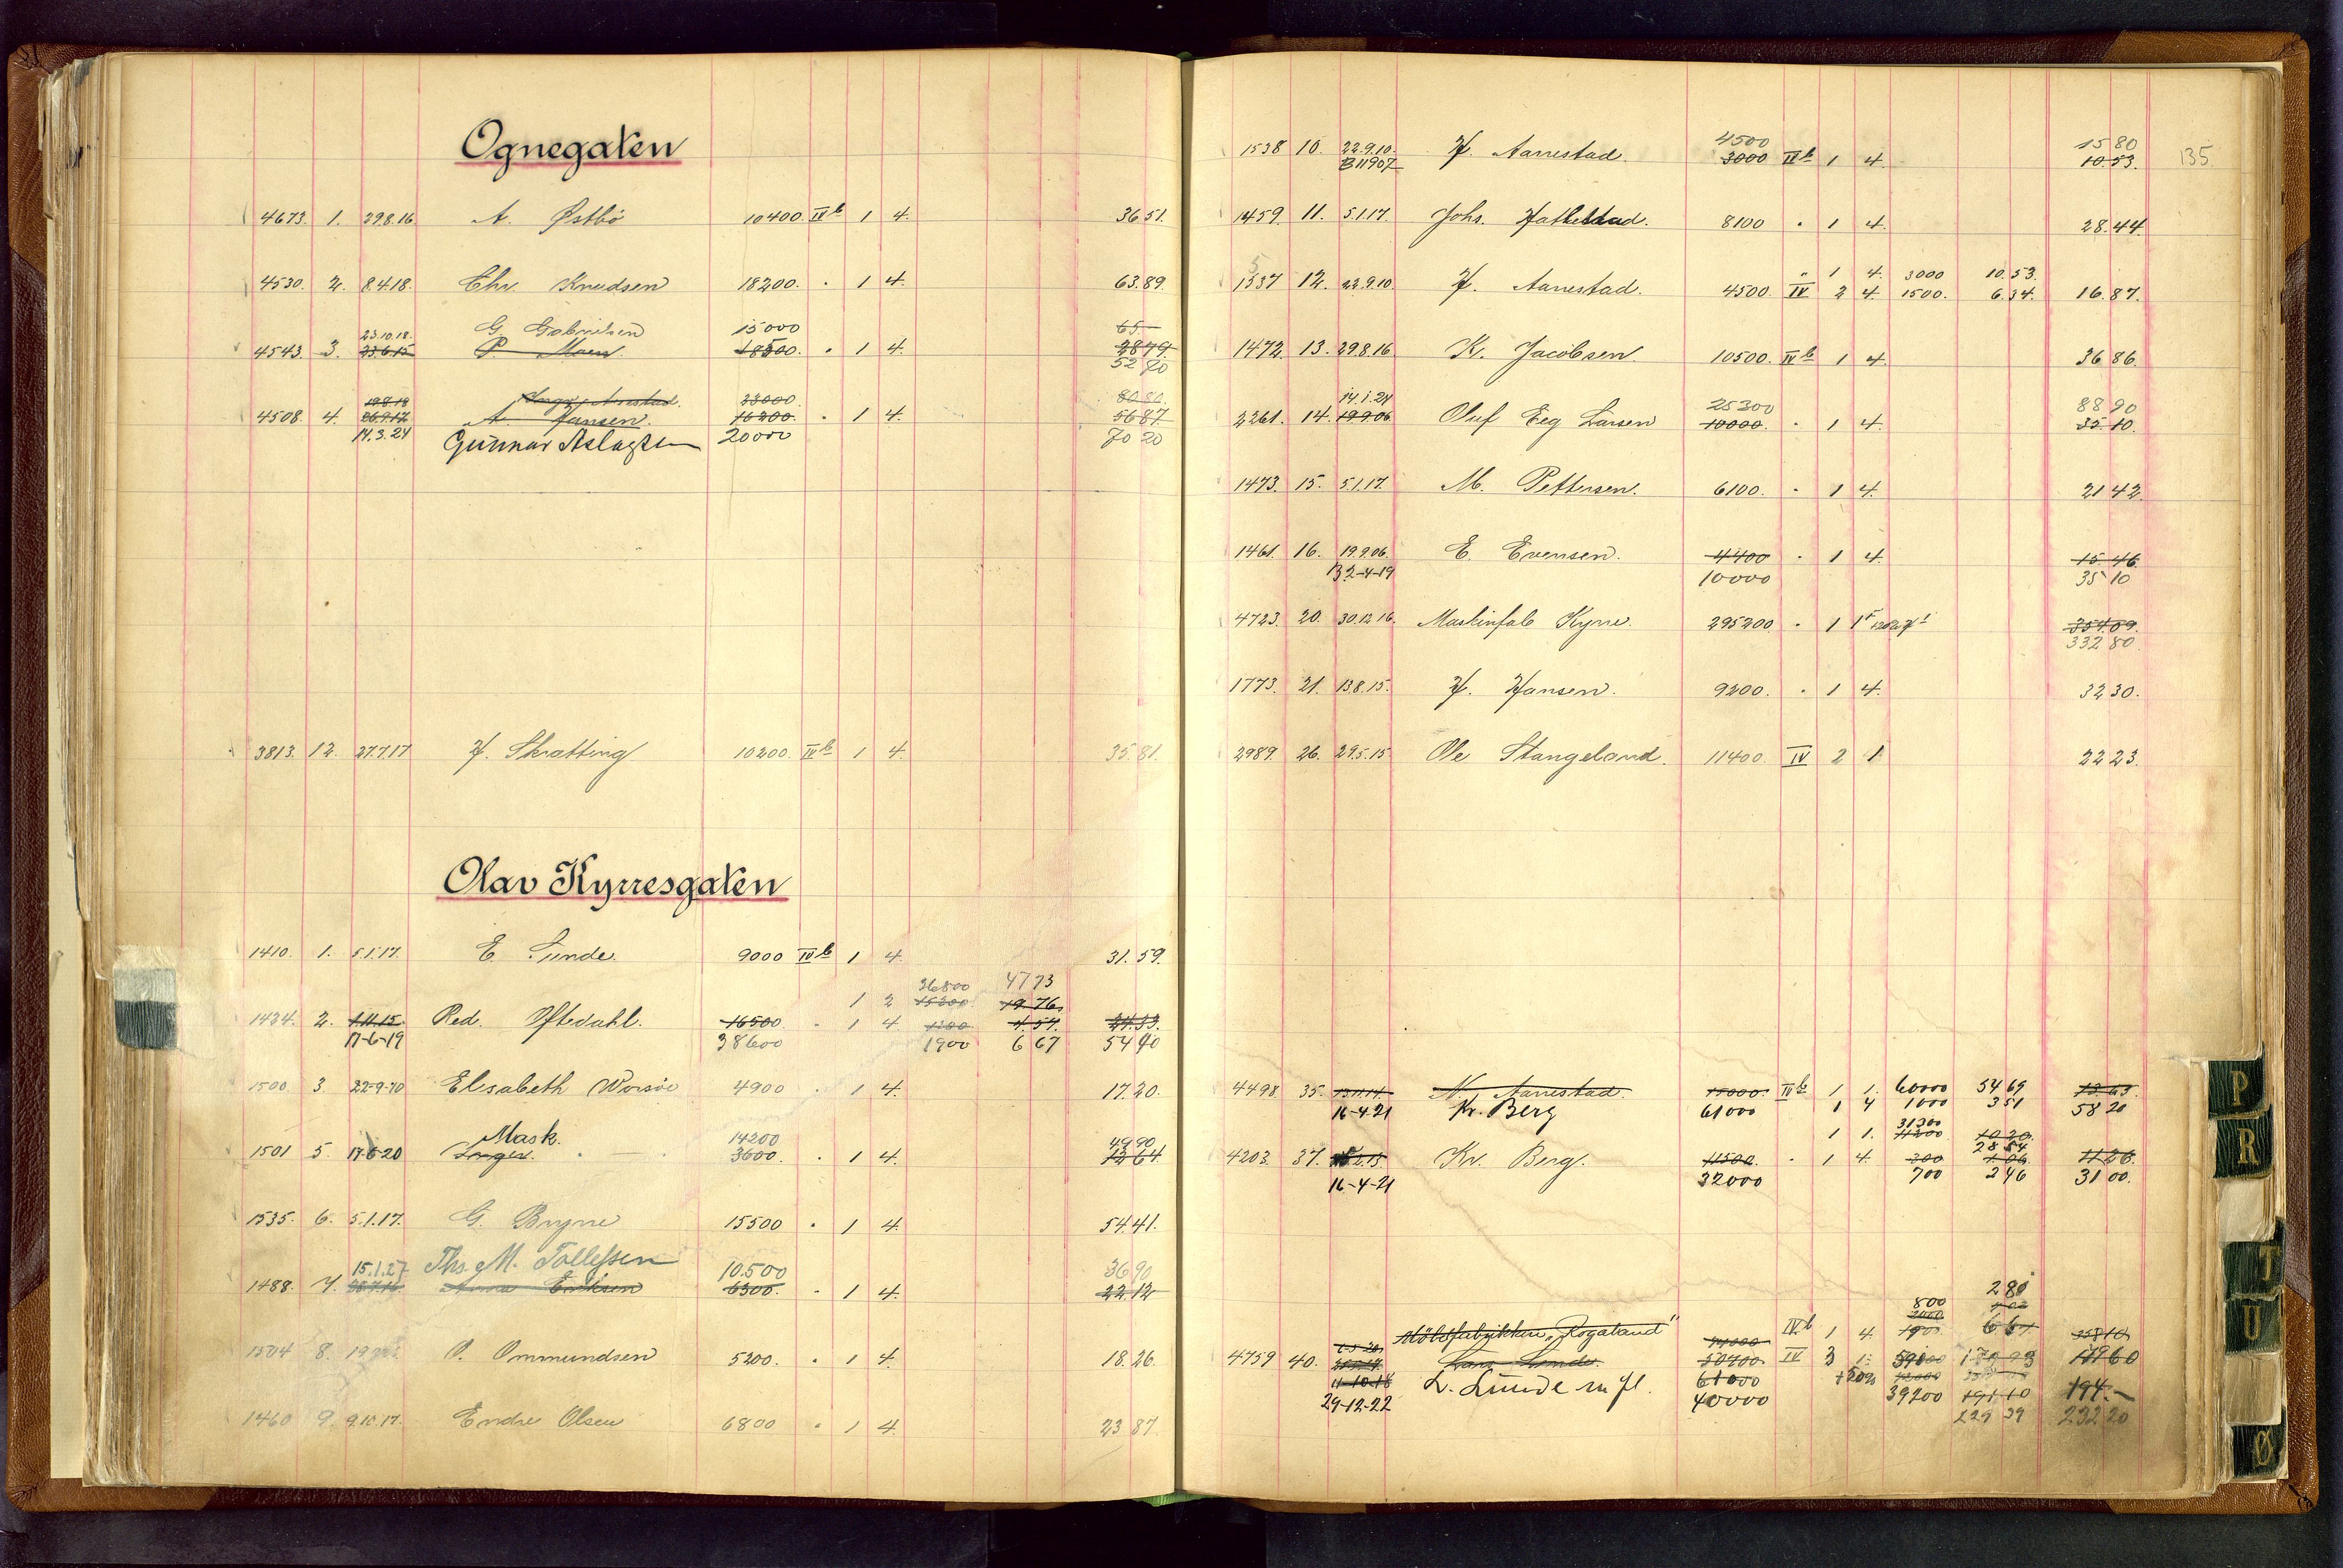 Ognegaten
4673. 1. 29.8.16 A. Østbö 10400. IV b 1 4. 36 51.
4530. 2. 8.4.18. Chr. Knudsen 18200. " 1 4. 63.89.
23.10.18. G. Gabrielsen 15000 65-
4543. 3. 23.6.15 P. Moen. 18500. " 1 4. 28 79
52 70
19.8.18 Aarrestad. 23000. 80 80.
4508. 4. 26.9.17 A. Hansen. 16200. " 1 4. 56 87
14.3.24 Gunnar Aslagsen 20000 70 20
3813. 12. 27.7.17 H. Skratting 10200. IV b 1 4. 35.81.
Olav Kyrresgaten
1410. 1. 5.1.17. E. Sunde. 9000 IV b 1 4. 31.59.
1 2 36800 47 73
15200 19 76
1434. 2. 1.11.15. Red. Oftedahl. 16500 " 1 4. 1300 4.57. 24.33.
17-6-19 38600 1900 6 67 54 40
1500. 3. 22-9-10 Elisabeth Worsöe 4900 " 1 4. 17.20.
Mask. 14200 49 90
1501 5. 17-6-20 3600. " 1 4. 12 64.
1535. 6. 5.1.17. G. Bryne 15500 " 1 4. 54.41.
15.1.27 Ths. M. Tollefsen 10.500 36 90
1488. 7. Anna Eriksen 6300. " 1 4. 22.12
1504 8. O. Ommundsen 5200. " 1 4. 18.26.
1460 9. 9.10.17. Endre Olsen 6800 " 1 4. 23 87.
135.
4500 15 80
1538 10. 22.9.10. H. Aarrestad. 3000 IV b 1 4. 10.53.
B 11907
1459. 11. 5.1.17. Johs. 8100 " 1 4. 28.44.
5
1537 12. 22.9.10 H. Aarrestad. " 1 4. 3000 10.53.
4500. IV 2 4. 1500. 6.34. 16.87.
1472. 13. 29.8.16 K. Jacobsen 10500. IV b 1 4. 36 86.
14.1.24 25300 88 90
2261. 14. 19.9.06 Oluf Eeg Larsen 10000. " 1 4. 35.10.
1473. 15. 5.1.17. M. Pettersen. 6100. " 1 4. 21 42.
1461. 16. 19.9.06. E. Evensen. 4400 " 1 4. 15 46.
B 2-4-19 10000 35 10
4723. 20. 30.12.16. Maskinfab Kyrre. 295200. " 1 1 354.09.
332 80
1773. 21. 13.8.15. H. Hansen. 9200. " 1 4. 32 30.
2989. 26. 29.5.15. Ole Stangeland. 11400. IV 2 1 22 23.
4498. 35. 13.11.14. N. Aarrestad. 15000. IV b 1 1. 60000 54 69 13 63.
16-4-21 Kr. Berg 61000 1 4 1000 3 51 58 20
31300
1 1. 11200 10 20.
28 54
4203. 37. Kr. Berg. 11500. " 1 4. 300 1.06. 11 26.
16-4-21 32000 700 2 46 31 00.
2 80
800
2000
Möbelfabrikken "Rogaland" 74000 IV b 1 4. 1900. 6 67 258 10
4759 40. Lars Lunde. 50400. IV 3 1. 179 60
11-10-18 61000 +20%
29-12-22 L. Lunde m fl. 40000 39200 191 10 194.-
229 39 232 20
P
R
T
U
Ø